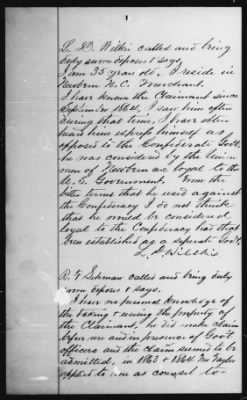 L. D. Wilkie called and being
duly sworn deposes & says
I am 35 years old, I reside in
Newbern N.C. Merchant.
I have known the Claimant since
September 1864. I saw him often
during that time, I have often
heard him express himself as
opposed to the Confederate Govt.
he was considered by the Union
men of Newbern as loyal to the
U.S. Government. From the
bitter terms that he used against
the Confederacy I do not think
that he would be considered
loyal to the Confederacy had that
been established as a seperate Govt.
L. D. Wilkie
R. F. Lehman called and being duly
sworn deposes & says.
I have no personal knowledge of
the taking & using the property of
the Claimant, he did make claim
before me and in presence of Govt
officers and the claim seemed to be
admitted, in 1863 & 1864 Mr Taylor
applied to me as counsel to